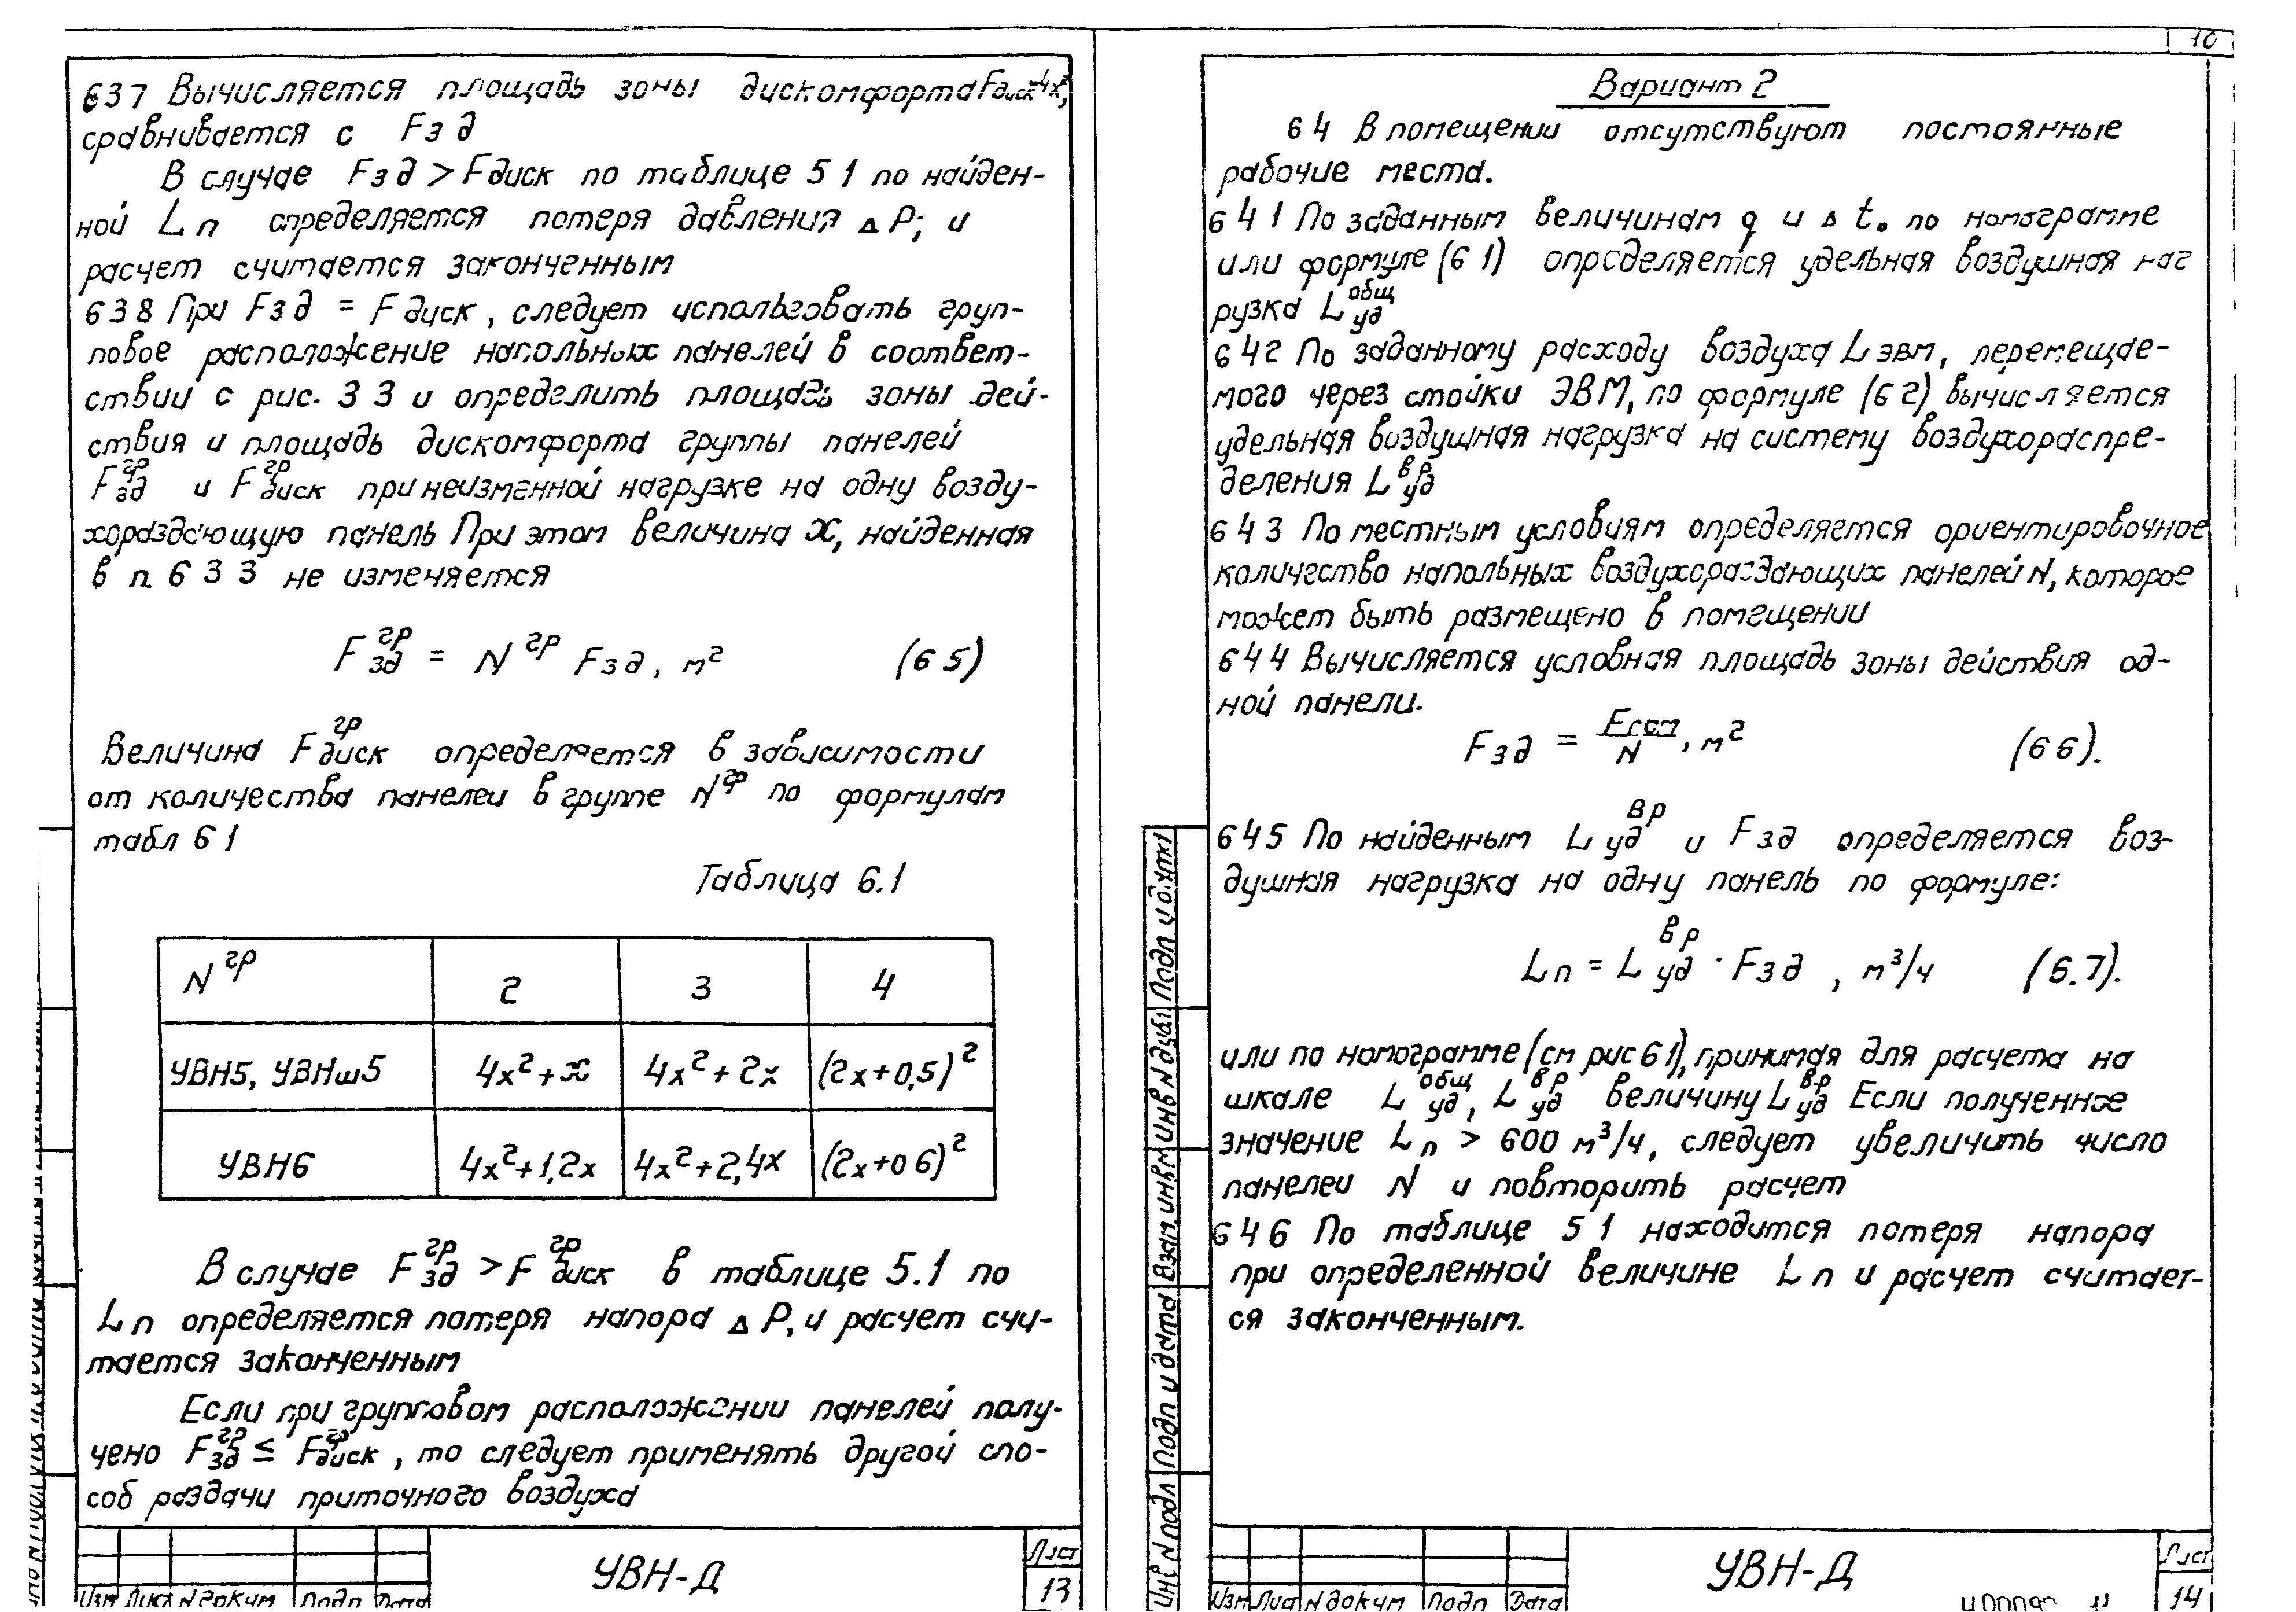 10
637 Вычисляется площадь зоны дискомфорта Fдиск=4x²,
сравнивается с Fзд
В случае Fзд > Fдиск по таблице 51 по найден-
ной Lп определяется потеря давления ΔP; и
расчет считается законченным
638 При Fзд = Fдиск, следует использовать груп-
повое расположение напольных панелей в соответ-
ствии с рис. 33 и определить площадь зоны дей-
ствия и площадь дискомфорта группы панелей
Fзд^гр и Fдиск^гр при неизменной нагрузке на одну возду-
хораздающую панель При этом величина x, найденная
в п 633 не изменяется
Fзд^гр = N^гр Fзд, м² (65)
Величина Fдиск^гр определяется в зависимости
от количества панелей в группе N^гр по формулам
табл 61
Таблица 6.1
N^гр 2 3 4
УВН5, УВНш5 4x²+x 4x²+2x (2x+0,5)²
УВН6 4x²+1,2x 4x²+2,4x (2x+06)²
В случае Fзд^гр > Fдиск^гр в таблице 5.1 по
Lп определяется потеря напора ΔP, и расчет счи-
тается законченным
Если при групповом расположении панелей полу-
чено Fзд^гр ≤ Fдиск^гр, то следует применять другой спо-
соб раздачи приточного воздуха
Изм Лист N докум Подп Дата
УВН-Д
Лист
13
Вариант 2
64 В помещении отсутствуют постоянные
рабочие места.
641 По заданным величинам q и Δt₀ по номограмме
или формуле (61) определяется удельная воздушная наг
рузка Lуд^общ
642 По заданному расходу воздуха Lэвм, перемещае-
мого через стойки ЭВМ, по формуле (62) вычисляется
удельная воздушная нагрузка на систему воздухораспре-
деления Lуд^вр
643 По местным условиям определяется ориентировочное
количество напольных воздухораздающих панелей N, которое
может быть размещено в помещении
644 Вычисляется условная площадь зоны действия од-
ной панели.
Fзд = Fпом/N, м² (66).
645 По найденным Lуд^вр и Fзд определяется воз-
душная нагрузка на одну панель по формуле:
Lп = Lуд^вр · Fзд, м³/ч (6.7).
или по номограмме (см рис 61), принимая для расчета на
шкале Lуд^общ, Lуд^вр величину Lуд^вр Если полученное
значение Lп > 600 м³/ч, следует увеличить число
панелей N и повторить расчет
646 По таблице 51 находится потеря напора
при определенной величине Lп и расчет считает-
ся законченным.
Инв N подл Подп и дата Взам инв N Инв N дубл Подп и дата
Изм Лист N докум Подп Дата
УВН-Д
Лист
14